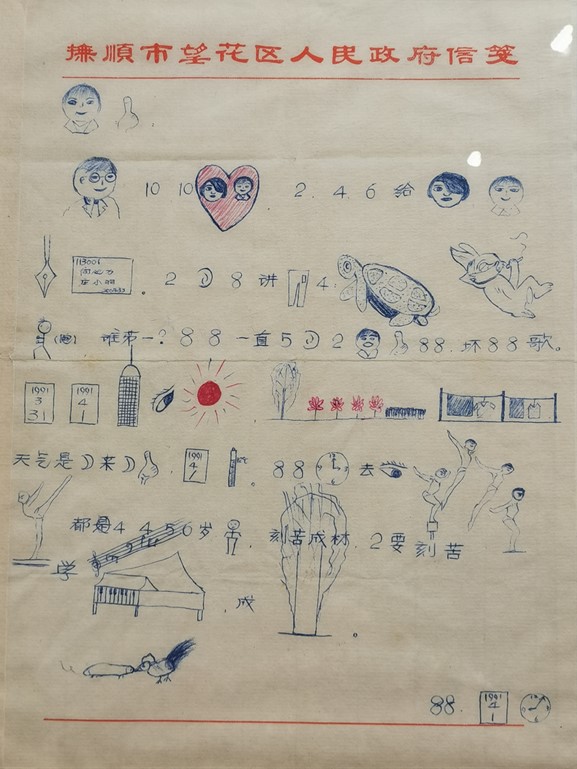 撫順市望花区人民政府信笺
10 10 . 2 . 4 . 6 给
113001
。2 8 讲 4
谁第一? 8 8 一直 5 2 88. 环 88 歌。
1991 3 31 1991 4 1
天气是 来 . 1991 4 1 。88 去
都是 4 4 5 6 岁 . 刻苦成材. 2 要刻苦
学 . 成 。
88. 1991 4 1